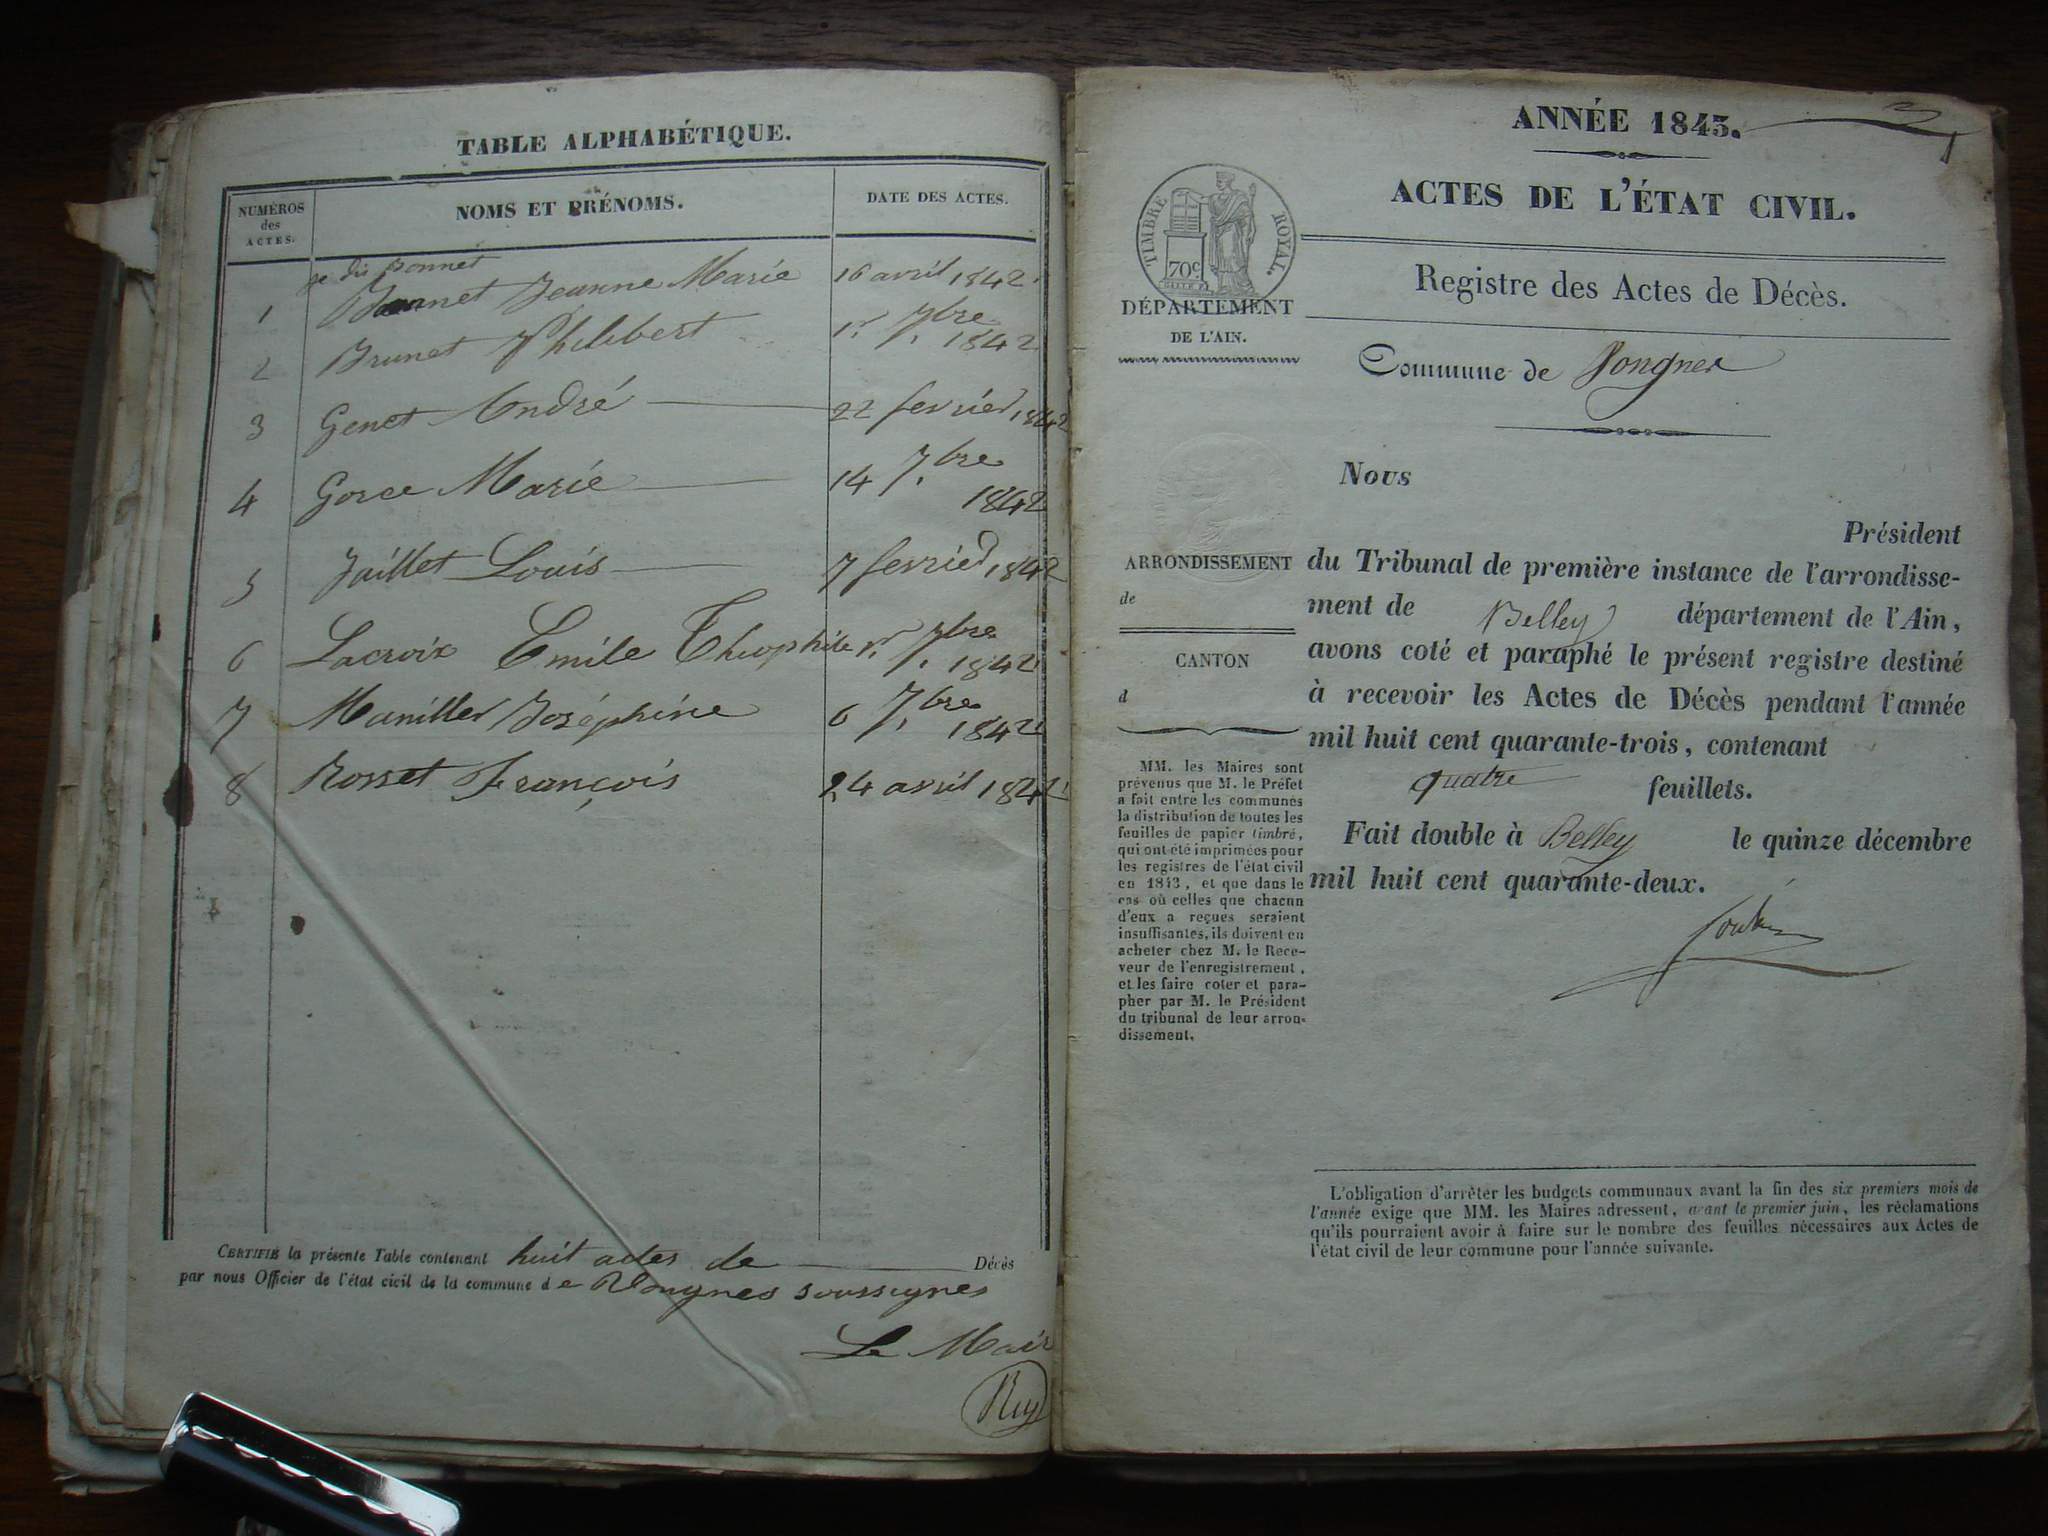 TABLE ALPHABÉTIQUE.
NUMÉROS des ACTES. NOMS ET PRÉNOMS. DATE DES ACTES.
je dis Bonnet
1 Jeanne Marie 16 avril 1842
2 Brunet Philibert 1er 7bre 1842
3 Genet André 22 fevrier 1842
4 Gorce Marie 14 7bre 1842
5 Jaillet Louis 7 fevrier 1842
6 Lacroix Emile Théophile 1er 7bre 1842
7 Manillier Joséphine 6 7bre 1842
8 Rosset François 24 avril 1842
CERTIFIÉ la présente Table contenant huit actes de Décès
par nous Officier de l'état civil de la commune de Vongnes soussignés
Le Maire
ANNÉE 1843.
ACTES DE L'ÉTAT CIVIL.
TIMBRE ROYAL.
70c
DÉPARTEMENT
DE L'AIN.
Registre des Actes de Décès.
Commune de Vongnes
Nous
Président
du Tribunal de première instance de l'arrondisse-
ment de Belley département de l'Ain,
avons coté et paraphé le présent registre destiné
à recevoir les Actes de Décès pendant l'année
mil huit cent quarante-trois, contenant
quatre feuillets.
Fait double à Belley le quinze décembre
mil huit cent quarante-deux.
ARRONDISSEMENT
de
CANTON
d
MM. les Maires sont
prévenus que M. le Préfet
a fait entre les communes
la distribution de toutes les
feuilles de papier timbré,
qui ont été imprimées pour
les registres de l'état civil
en 1843, et que dans le
cas où celles que chacun
d'eux a reçues seraient
insuffisantes, ils doivent en
acheter chez M. le Rece-
veur de l'enregistrement,
et les faire coter et para-
pher par M. le Président
du tribunal de leur arron-
dissement.
L'obligation d'arrêter les budgets communaux avant la fin des six premiers mois de
l'année exige que MM. les Maires adressent, avant le premier juin, les réclamations
qu'ils pourraient avoir à faire sur le nombre des feuilles nécessaires aux Actes de
l'état civil de leur commune pour l'année suivante.